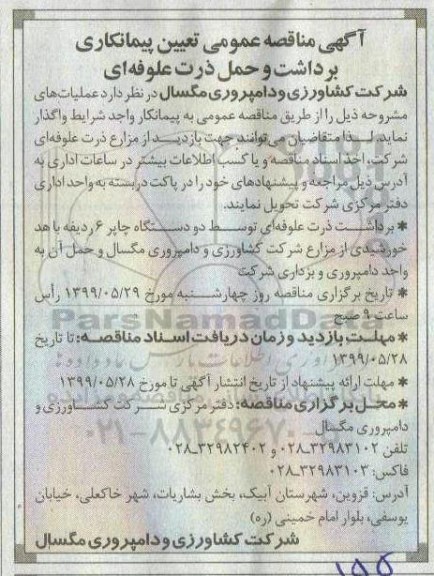 آگهی مناقصه عمومی تعیین پیمانکاری
برداشت و حمل ذرت علوفه‌ای
شرکت کشاورزی و دامپروری مگسال در نظر دارد عملیات‌های
مشروحه ذیل را از طریق مناقصه عمومی به پیمانکار واجد شرایط واگذار
نماید. لذا متقاضیان می‌توانند جهت بازدید از مزارع ذرت علوفه‌ای
شرکت، اخذ اسناد مناقصه و یا کسب اطلاعات بیشتر در ساعات اداری به
آدرس ذیل مراجعه و پیشنهادهای خود را در پاکت دربسته به واحد اداری
دفتر مرکزی شرکت تحویل نمایند.
* برداشت ذرت علوفه‌ای توسط دو دستگاه چاپر ۶ ردیفه با هد
خورشیدی از مزارع شرکت کشاورزی و دامپروری مگسال و حمل آن به
واحد دامپروری و بزداری شرکت
* تاریخ برگزاری مناقصه روز چهارشنبه مورخ ۱۳۹۹/۰۵/۲۹ رأس
ساعت ۹ صبح
ParsNamadData
* مهلت بازدید و زمان دریافت اسناد مناقصه: تا تاریخ
۱۳۹۹/۰۵/۲۸
* مهلت ارائه پیشنهاد از تاریخ انتشار آگهی تا مورخ ۱۳۹۹/۰۵/۲۸
* محل برگزاری مناقصه: دفتر مرکزی شرکت کشاورزی و
دامپروری مگسال
۰۲۱-۸۸۳۴۹۶۷۰
تلفن ۳۲۹۸۳۱۰۲-۰۲۸ و ۳۲۹۸۲۴۰۲-۰۲۸
فاکس: ۳۲۹۸۳۱۰۳-۰۲۸
آدرس: قزوین، شهرستان آبیک، بخش بشاریات، شهر خاکعلی، خیابان
یوسفی، بلوار امام خمینی (ره)
شرکت کشاورزی و دامپروری مگسال